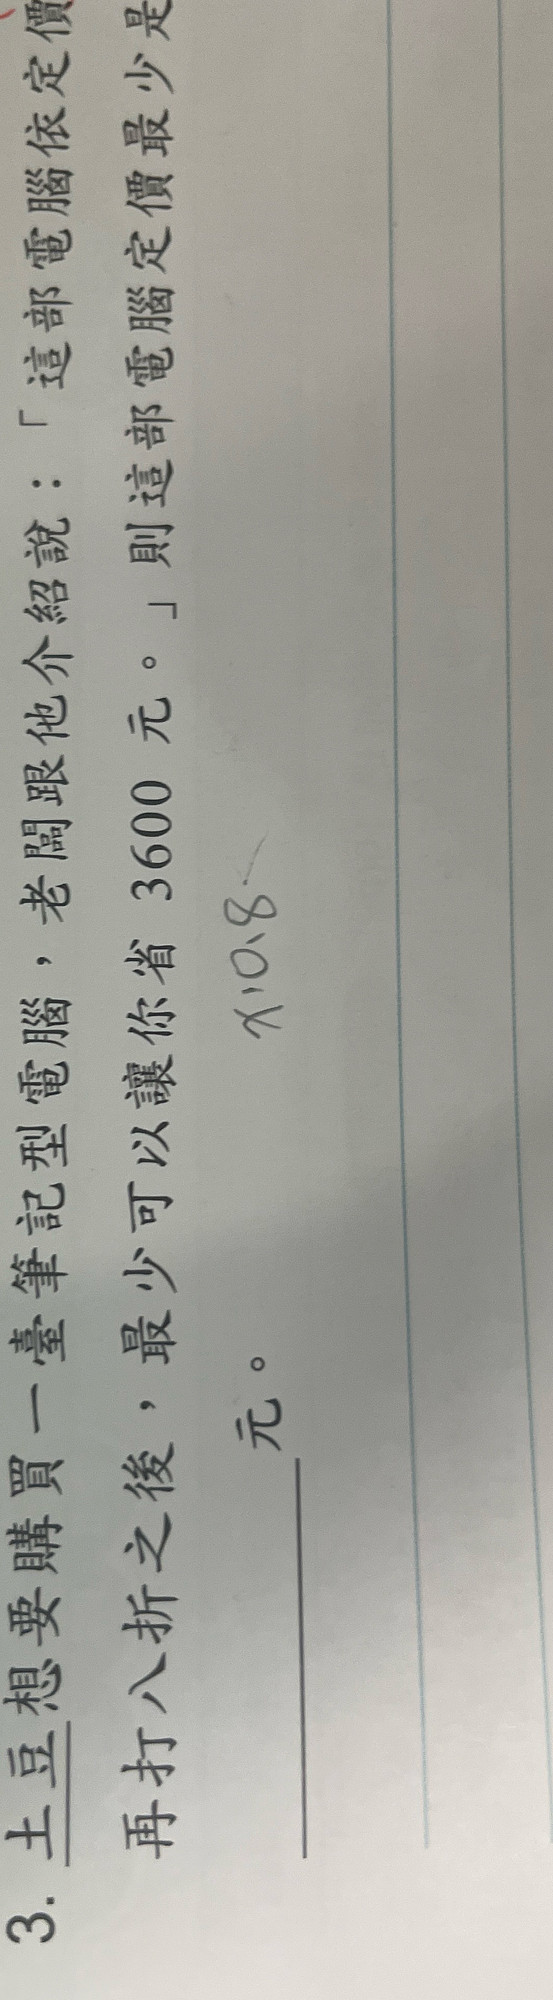 3. 土豆想要購買一臺筆記型電腦，老闆跟他介紹說：「這部電腦依定價
再打八折之後，最少可以讓你省 3600 元。」則這部電腦定價最少是
元。
x×0.8